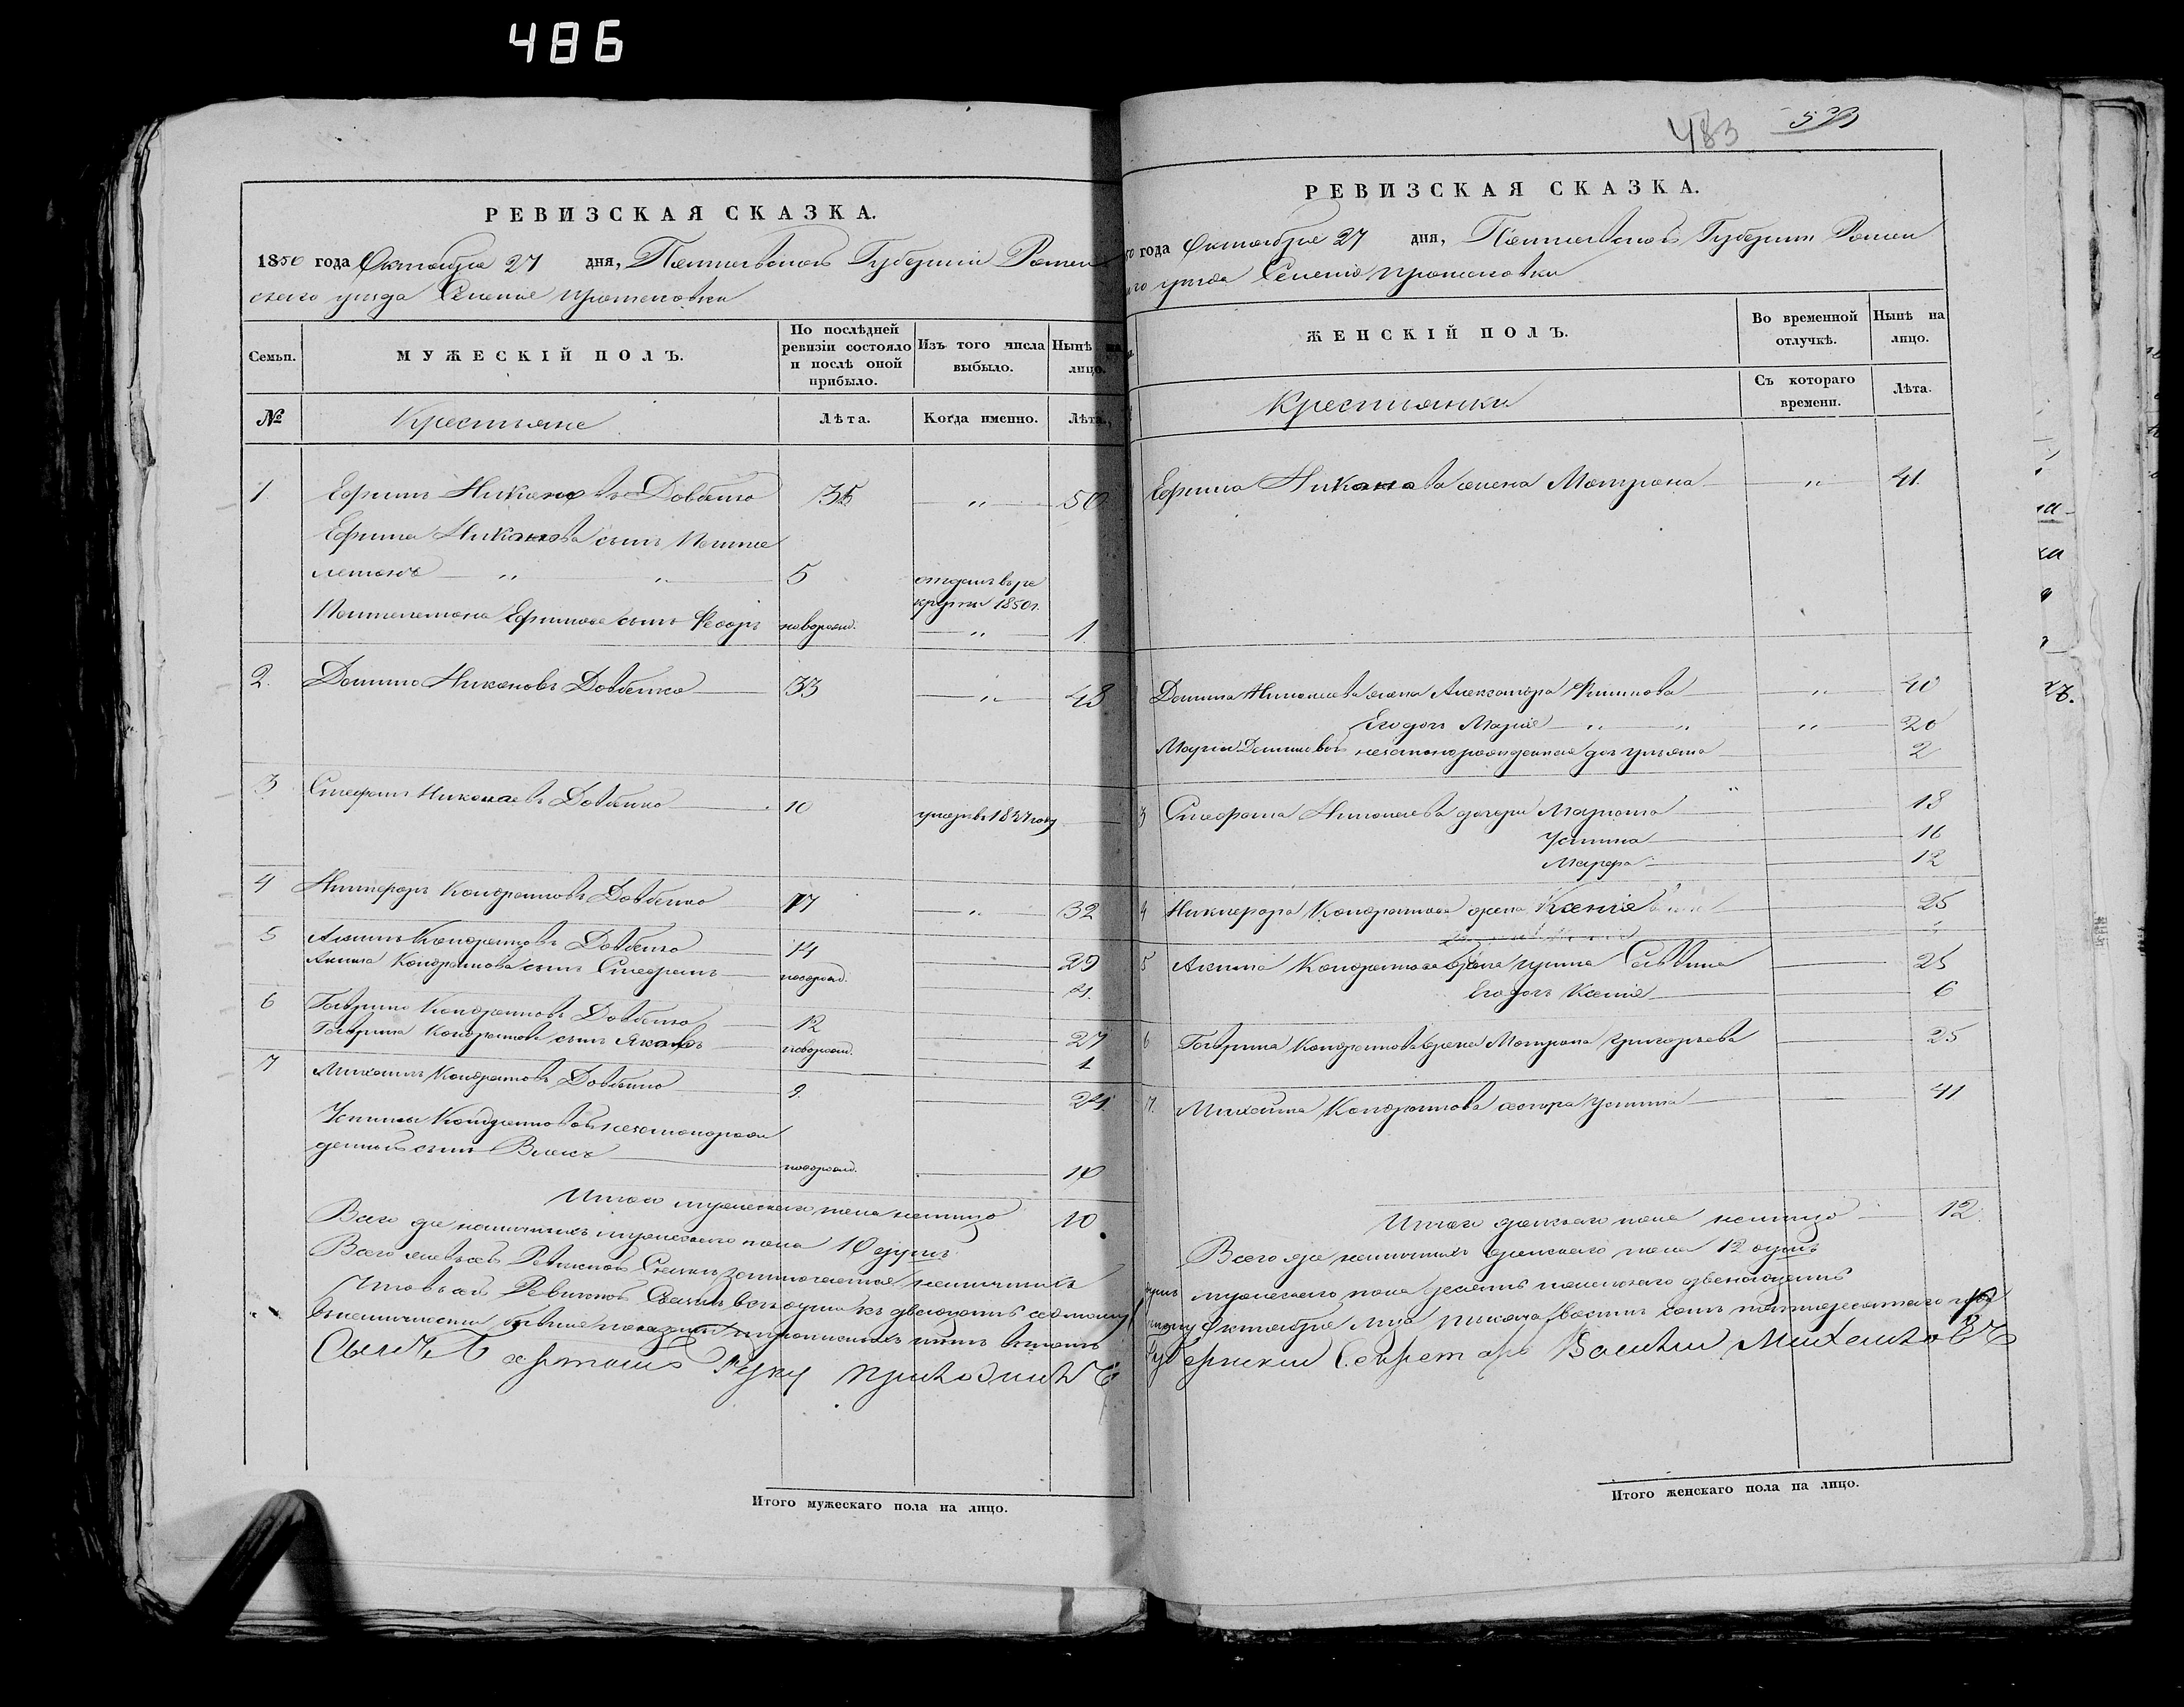 486
РЕВИЗСКАЯ СКАЗКА.
1850 года Октября 27 дня, Полтавской Губернии Ромен
ского уезда Селение
Семьи.
МУЖЕСКІЙ ПОЛЪ.
По послѣдней ревизіи состояло и послѣ оной прибыло.
Изъ того числа выбыло.
Нынѣ на лицо.
№
Крестьяне
Лѣта.
Когда именно.
Лѣта.
1. Ефимъ Никоновъ Довбенко 35 " 50
Ефима Никонова сынъ Панте
лемонъ " " 5 отданъ въ ре
круты 1850 г.
Пантелемона Ефимова сынъ Федоръ новорожд. " 1
2. Данило Никоновъ Довбенко 33 " 48
3 Стефанъ Николаевъ Довбенко 10 умеръ в 18 году
4 Никифоръ Кондратовъ Довбенко 17 " 32
5 Акимъ Кондратовъ Довбенко 14 29
Акима Кондратова сынъ Стефанъ новорожд. 4.
6 Гаврило Кондратовъ Довбенко 12 27
Гаврила Кондратова сынъ Яковъ новорожд. 1
7 Михаилъ Кондратовъ Довбенко 9. 24
Устиньи Кондратовой незаконорож
денный сынъ Власъ новорожд. 10
Итого мужескаго пола налицо 10
Всего же наличныхъ мужескаго пола 10 душъ
Всего же въ сей Ревизской Сказке заключается наличныхъ
Что въ сей Ревизской Сказке все души къ двадцать седьмому
руку приложилъ
Итого мужескаго пола на лицо.
483
533
РЕВИЗСКАЯ СКАЗКА.
50 года Октября 27 дня, Полтавской Губернии Ромен
го уезда Селение
ЖЕНСКІЙ ПОЛЪ.
Во временной отлучкѣ.
Нынѣ на лицо.
Крестьянки
Съ котораго времени.
Лѣта.
Ефима Никонова жена Матрона " 41.
Данила Николаева жена Александра Филипова " 40
Его дочь Мария " " " 20
Марии Даниловой незаконорожденная дочь Ульяна 2
3 Стефана Николаева дочери Марина " 18
Устина 16
Марфа 12
4 Никифора Кондратова жена Ксения 25
5 Акима Кондратова жена Ирина Саввина 25
Его дочь Ксения 6
6 Гаврила Кондратова жена Матрона Григорьева 25
7. Михайла Кондратова сестра Устина 41
Итого женскаго пола налицо 12.
Всего же наличныхъ женскаго пола 12 душъ
душъ мужескаго пола десять женскаго двенадцать
Октября м-ца тысяча восемь сотъ пятьдесятаго года
Губернский Секретарь Василий Михайловъ
Итого женскаго пола на лицо.